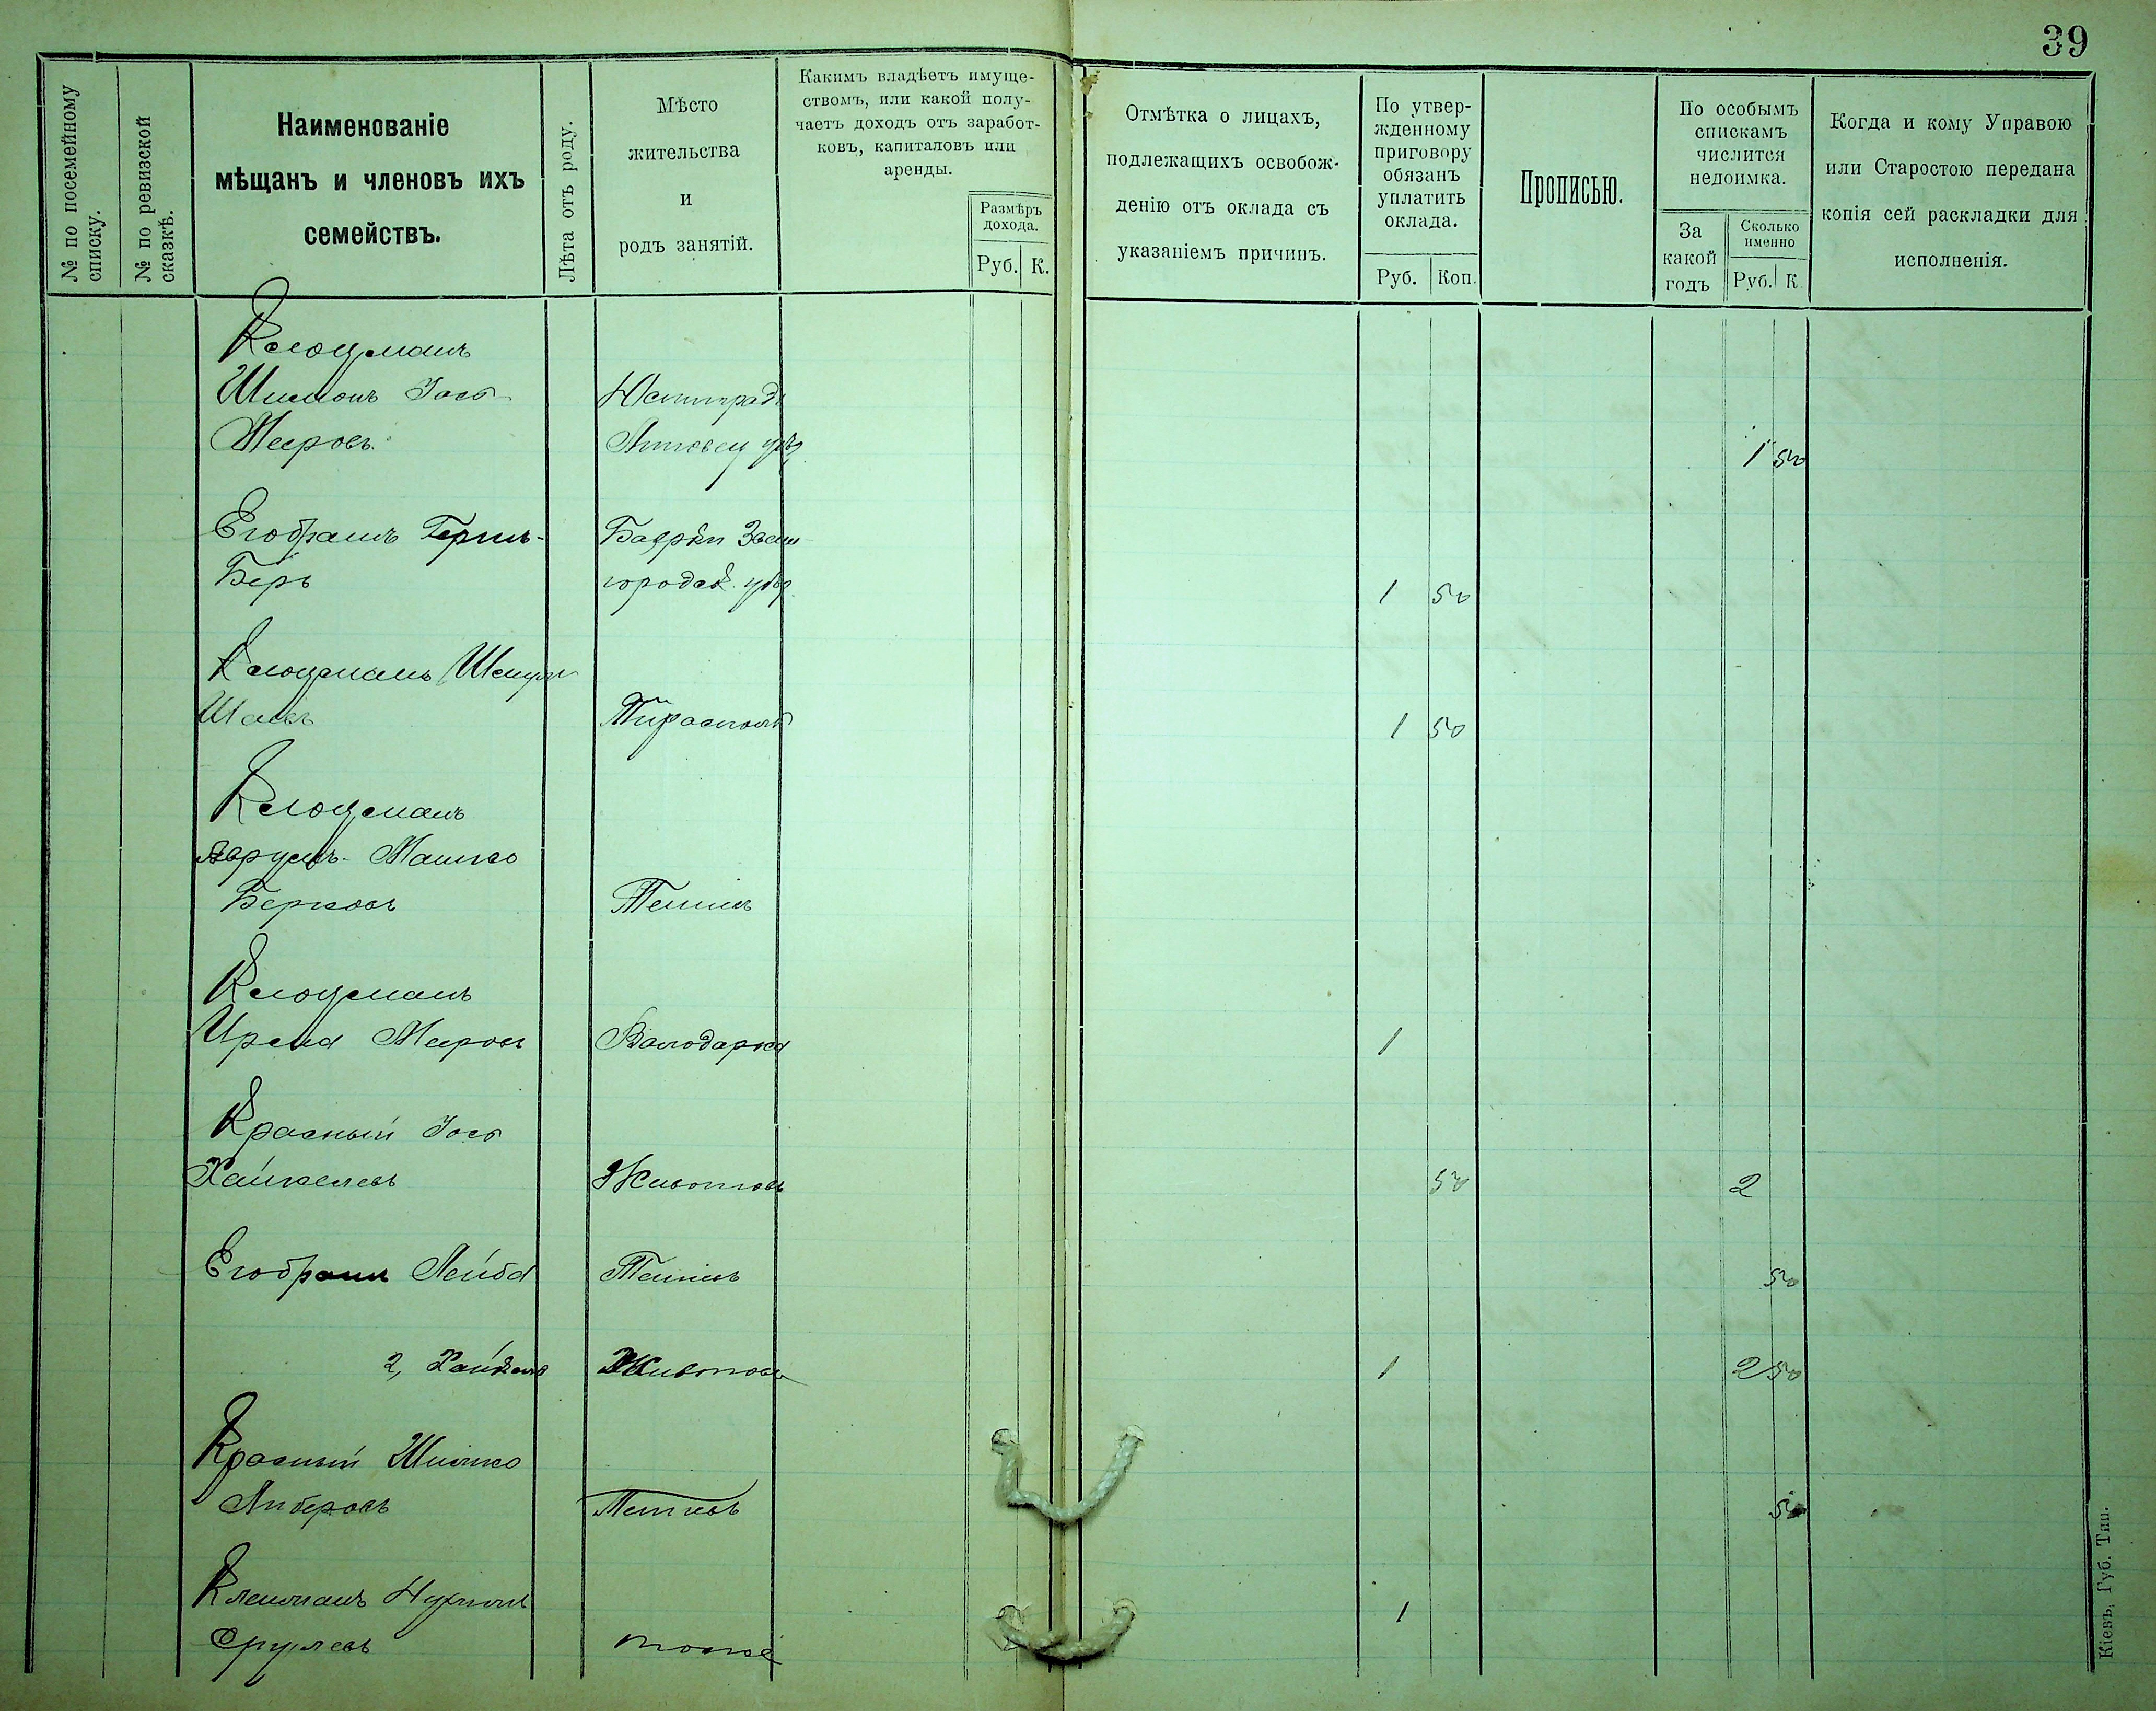 39
№ по посемейному
списку.
№ по ревизской
сказкѣ.
Наименованіе
мѣщанъ и членовъ ихъ
семействъ.
Лѣта отъ роду.
Мѣсто
жительства
и
родъ занятій.
Какимъ владѣетъ имуще-
ствомъ, или какой полу-
чаетъ доходъ отъ заработ-
ковъ, капиталовъ или
аренды.
Размѣръ
дохода.
Руб. К.
Отмѣтка о лицахъ,
подлежащихъ освобож-
денію отъ оклада съ
указаніемъ причинъ.
По утвер-
жденному
приговору
обязанъ
уплатить
оклада.
Руб. Коп.
Прописью.
По особымъ
спискамъ
числится
недоимка.
За
какой
годъ
Сколько
именно
Руб. К.
Когда и кому Управою
или Старостою передана
копія сей раскладки для
исполненія.
Клоцманъ
Шимонъ Іось Юстинградъ
Мееровъ Липовец уѣз 1 50
Герш-
Беръ городск. уѣз. 1 50
Клоцманъ
Тирасполь 1 50
Клоцманъ
Аврумъ-Машко
Берковъ Тетіевъ
Клоцманъ
Мееровъ Володарка 1
Красный Іось
Хайкелевъ Животовъ 50 2
Лейба Тетіевъ 50
2, Хайкель Животовъ 1 2 50
Красный Шмилко
Либеровъ Тетіевъ 50
Клейманъ 1
Срулевъ тоже
Кіевъ, Губ. Тип.